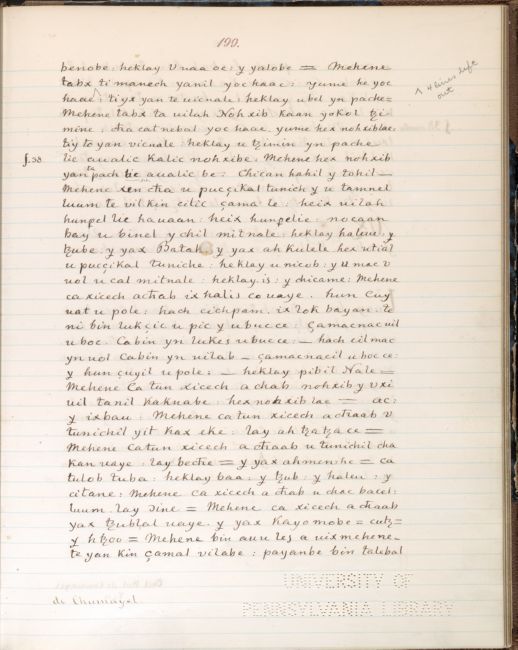 190.
benobe: heklay u naa oc: y yalobe = Mehene
tabx ti manech yanil yoc haac: yume he yoc
^ 4 lines left out
haac: tiyx yan te uicnale: heklay ubel yn pache=
Mehene tabx ta uilah Nohxib kaan yokol tzi
mine, cħa cat nebal yoc haac, yume hex nohxiblac
tiy to yan vicnale: heklay u tzimin yn pache
f.38. lic aualic kalic nohxibe. Mehene hex nohxib
yan ta pach lic aualic be: Chican kahil y tohil -
Mehene xen cħa u pucçikal tunich y u tamnel
luum te vil kin cilic çama le: heix uilah
hunpel lic hauaan: heix hunpelic: nocaan
bay u binel y chil mitnale: heklay haleu, y
tzube, y yax Batab, y yax ah kulele hex utial
u pucçikal tuniche: heklay u nicob: y u mac v
uol u cal mitnale: heklay, is: y chicame: Mehene
ca xicech achab ix halis co uaye. hun cuy
uat u pole: hach cichpam, ix lok bayan: te
ni bin lukçic u pic y ubucce: çamacnac uil
u boc. Cabin yn lukes u bucce: - hach cilmac
yn uol Cabin yn uilab - çamacnacil u boc ce:
y hun cuyil u pole: - heklay pibil Nale =
Mehene Ca tun xicech a chab nohxib y vxi
uil tanil kaknabe: hex nohxib lae - ac:
y ixbau: Mehene ca tun xicech a cħaab v
tunichil yit kax eke: lay ah tzatzace =
Mehene catun xicech a cħaab u tunichil cha
kan uaye: lay bechе = y yax ahmenħe = ca
tulob tuba: heklay baa: y tzub: y haleu: y
citane: Mehene ca xicech a cħab u choc bacel
luum. lay ɔine = Mehene ca xicech a cħaab
yax tzublal uaye. y yax kayomobe = cutz=
y htzoo = Mehene bin auu les a uixmehene-
te yan kin çamal vilabe: payanbe bin talebal
de Chumayel.
UNIVERSITY OF
PENNSYLVANIA LIBRARY